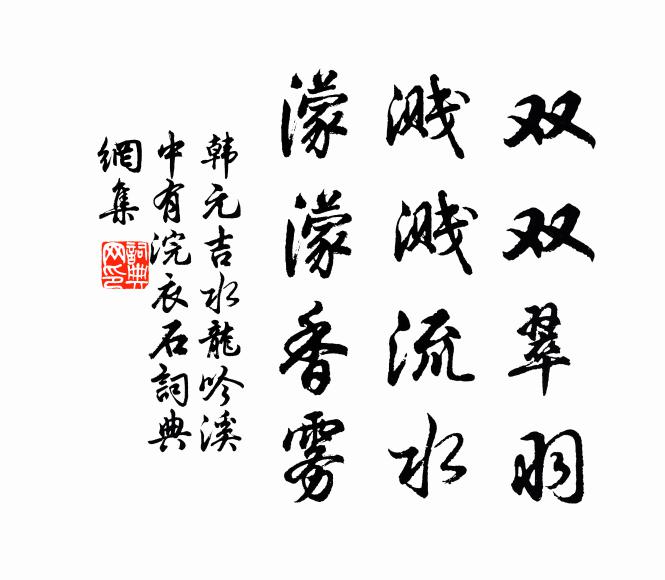 双双翠羽
溅溅流水
濛濛香雾
韩元吉水龙吟溪
中有浣衣石词典
網集
詞典網印